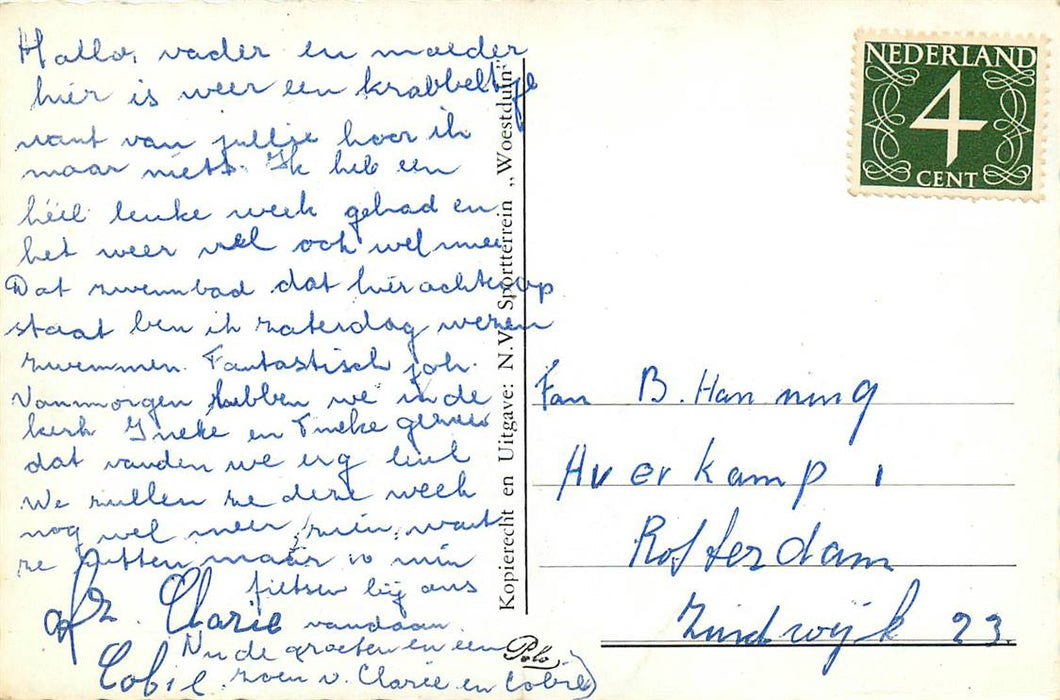 Hallo, vader en moeder
hier is weer een krabbeltje
want van jullie hoor ik
maar niets. Ik heb een
héél leuke week gehad en
het weer viel ook wel mee
Dat zwembad dat hier achterop
staat ben ik zaterdag wezen
zwemmen. Fantastisch joh.
Vanmorgen hebben we in de
kerk Ineke en Tineke gezien
dat vonden we erg leuk
We zullen ze deze week
nog wel meer zien, want
ze zitten maar 10 min
fietsen bij ons
vandaan.
Clarie
Nu de groeten en een
zoen v. Clarie en Cobie)
Cobie.
Kopierecht en Uitgave: N.V. Sportterrein „Woestduin”
Polo
NEDERLAND
4
CENT
Fam B. Hanning
Averkamp 1
Rotterdam
Zuidwijk 23.